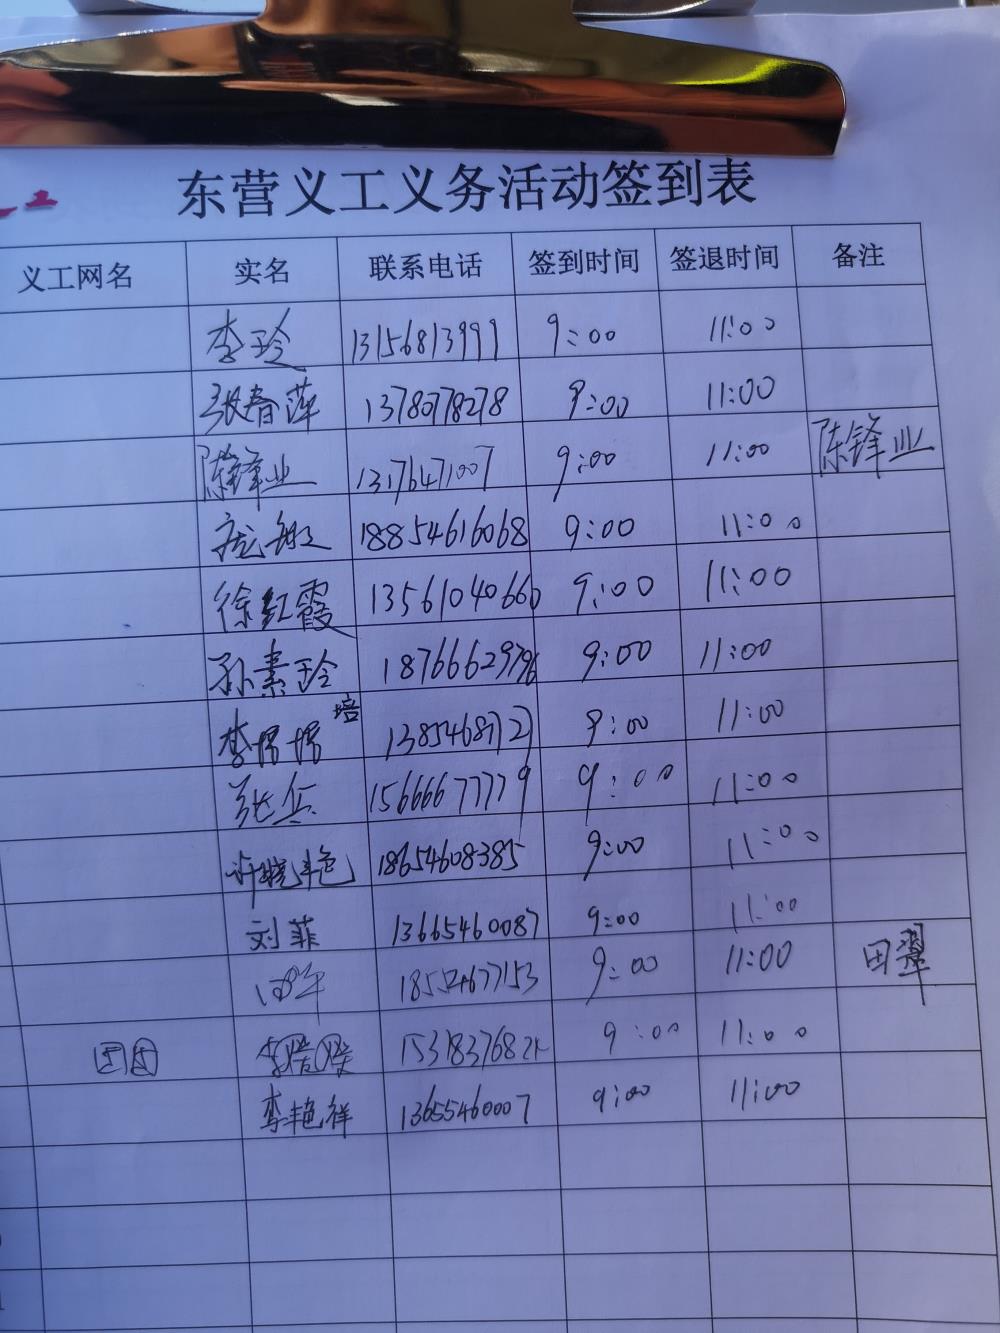 东营义工义务活动签到表
义工网名 实名 联系电话 签到时间 签退时间 备注
李玲 13156813999 9:00 11:00
张春萍 13780778278 9:00 11:00
陈锋业 13176471007 9:00 11:00 陈锋业
18854616068 9:00 11:00
徐红霞 13561040660 9:00 11:00
孙素玲 18766629796 9:00 11:00
李培培 培 9:00 11:00
张兵 15666677779 9:00 11:00
许晓艳 18654608385 9:00 11:00
刘菲 13665460087 9:00 11:00
18554677153 9:00 11:00 田翠
团团 9:00 11:00
李艳祥 13655460007 9:00 11:00